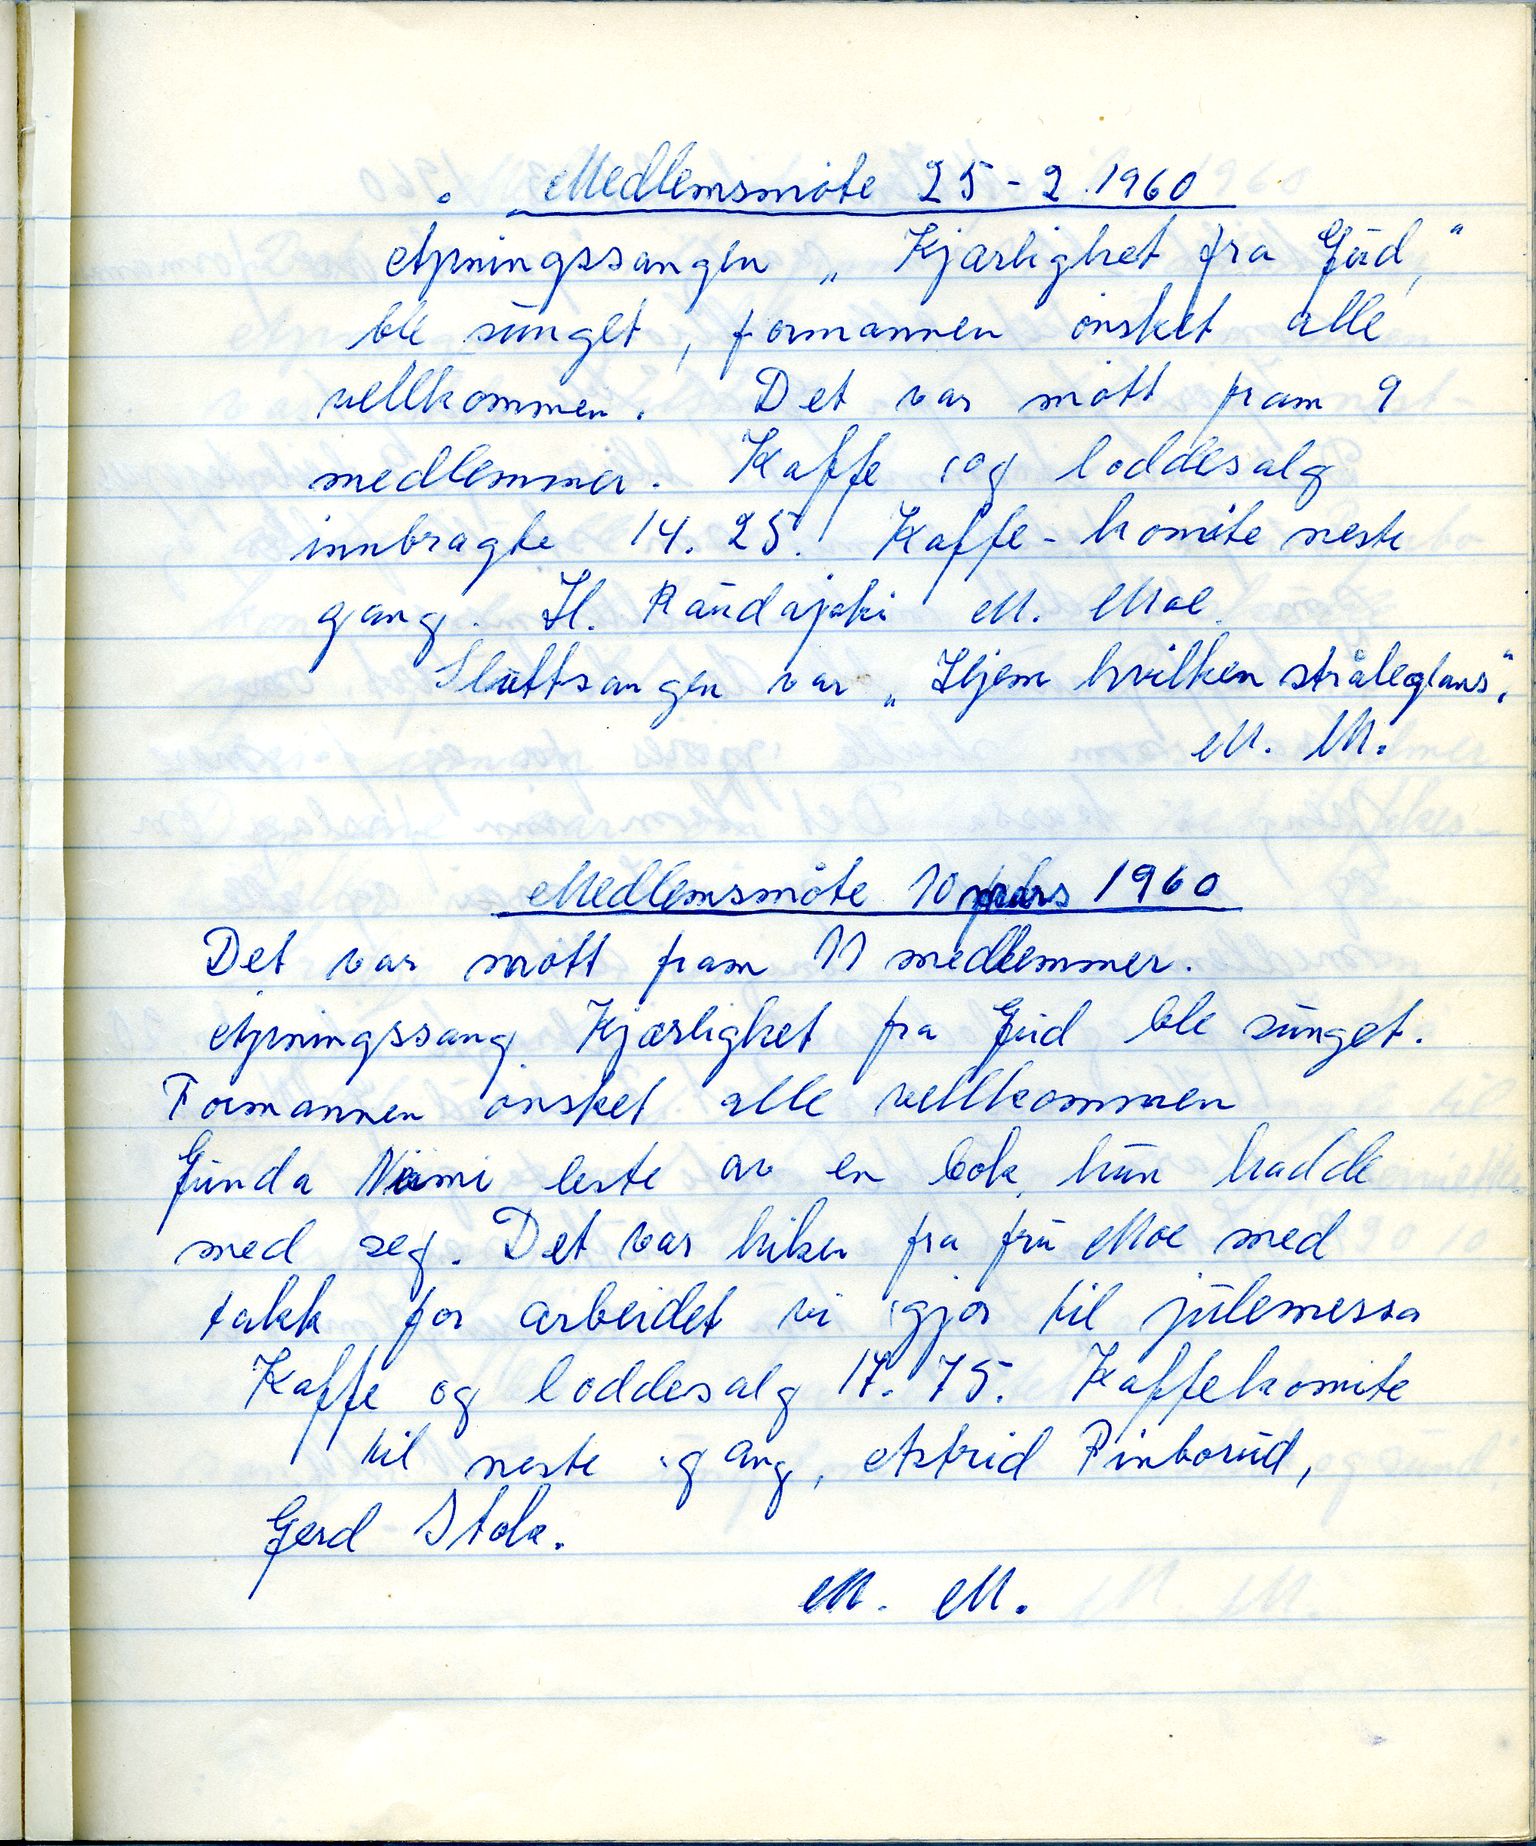 Medlemsmøte 25-2.1960
Åpningssangen „Kjærlighet fra Gud,"
ble sunget, formannen ønsket alle
vellkommen. Det var møtt fram 9
medlemmer. Kaffe og loddesalg
innbragte 14.25. Kaffe-komite neste
gang. H. Raudajoki M. Moe.
Sluttsangen var „Hjem hvilken stråleglans".
M. M.
Medlemsmøte 10 mars 1960
Det var møtt fram 11 medlemmer.
Åpningssang Kjærlighet fra Gud ble sunget.
Formannen ønsket alle vellkommen
Gunda Niemi leste av en bok hun hadde
med seg. Det var hilsen fra fru Moe med
takk for arbeidet vi gjør til julemessa
Kaffe og loddesalg 17.75. Kaffekomite
til neste gang, Astrid Finborud,
Gerd Stola.
M. M.